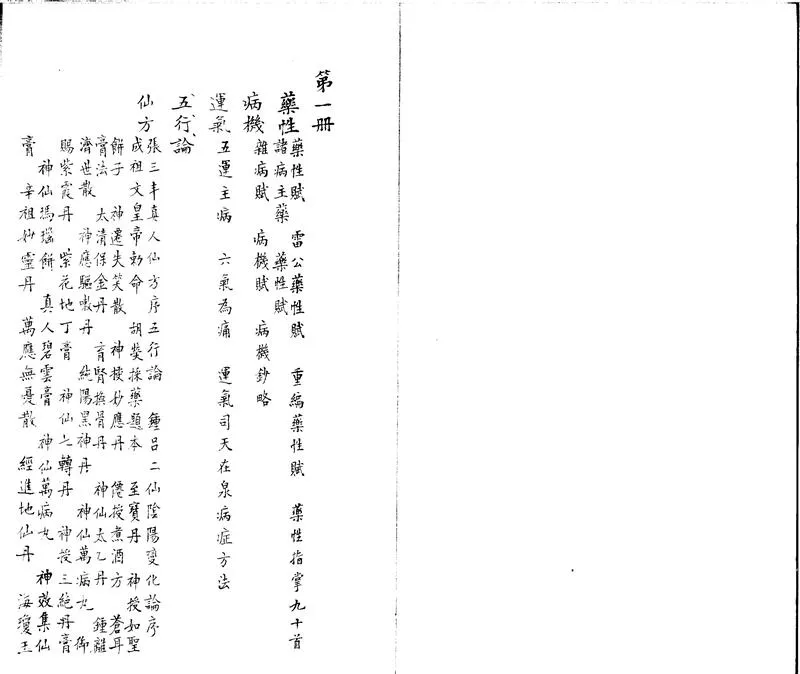 第一册
藥性
藥性賦 雷公藥性賦 重編藥性賦 藥性指掌九十首
諸病主藥 藥性賦
病機
雜病賦 病機賦 病機鈔略
運氣
五運主病 六氣為痛 運氣司天在泉病症方法
五行論
仙方
張三丰真人仙方序五行論 鍾呂二仙陰陽變化論序
成祖文皇帝勅命 胡熒採藥題本 至寶丹 神授如聖
餅子 神遷失笑散 神授妙應丹 僊授煮酒方 蒼耳
膏法 太清保金丹 育腎換骨丹 神仙太乙丹 鍾離
濟世散 神應驅嗽丹 純陽黑神丹 神仙萬病丸 御
賜紫霞丹 紫花地丁膏 神仙七轉丹 神授三絕丹膏
神仙瑪瑙餅 真人碧雲膏 神仙萬病丸 神效集仙
膏 辛祖妙靈丹 萬應無憂散 經進地仙丹 海瓊玉